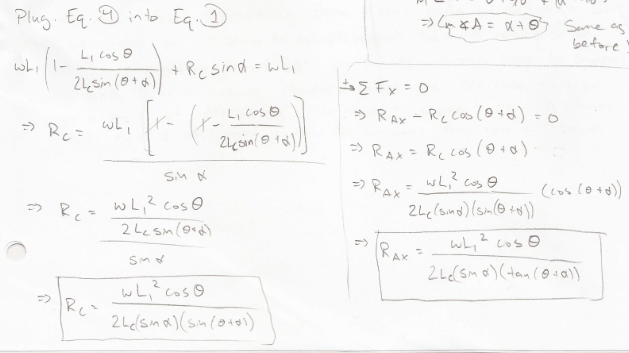 Plug. Eq. ④ into Eq. ①
wL₁ (1 - L₁cosθ / 2L_c sin(θ+α)) + R_c sinα = wL₁
⇒ R_c = wL₁ [1 - (1 - L₁cosθ / 2L_c sin(θ+α))] / sin α
⇒ R_c = wL₁² cosθ / 2L_c sin(θ+α) / sin α
⇒ R_c = wL₁² cosθ / 2L_c(sinα)(sin(θ+α))
⇒ ∠A = α+θ Same as
before!
→+ Σ F_x = 0
⇒ R_AX - R_c cos(θ+α) = 0
⇒ R_AX = R_c cos(θ+α)
⇒ R_AX = wL₁² cosθ / 2L_c(sinα)(sin(θ+α)) (cos(θ+α))
⇒ R_AX = wL₁² cosθ / 2L_c(sinα)(tan(θ+α))